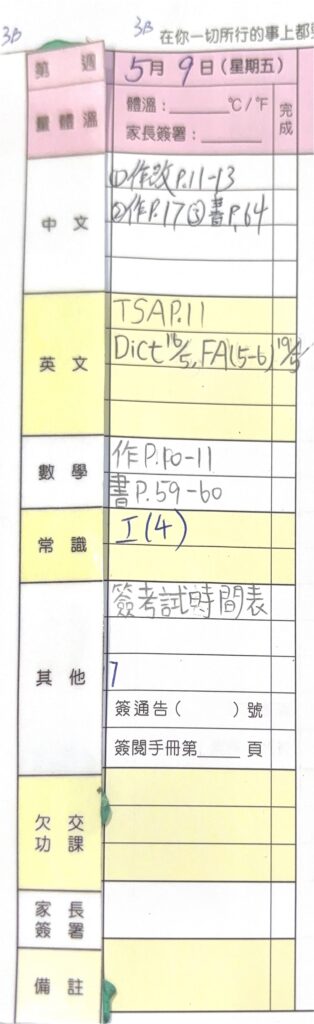 3B 3B 在你一切所行的事上都
第 週 5月9日(星期五)
量體溫 體溫:______°C/°F 完成
家長簽署:______
中文 ①作改P.11-13
②作P.17③書P.64
英文 TSAP.11
Dict 16/5, FA(5-6) 19/5
數學 作P.10-11
書P.59-60
常識 I(4)
其他 簽考試時間表
7
簽通告( )號
簽閱手冊第____頁
欠交功課
家長簽署
備註